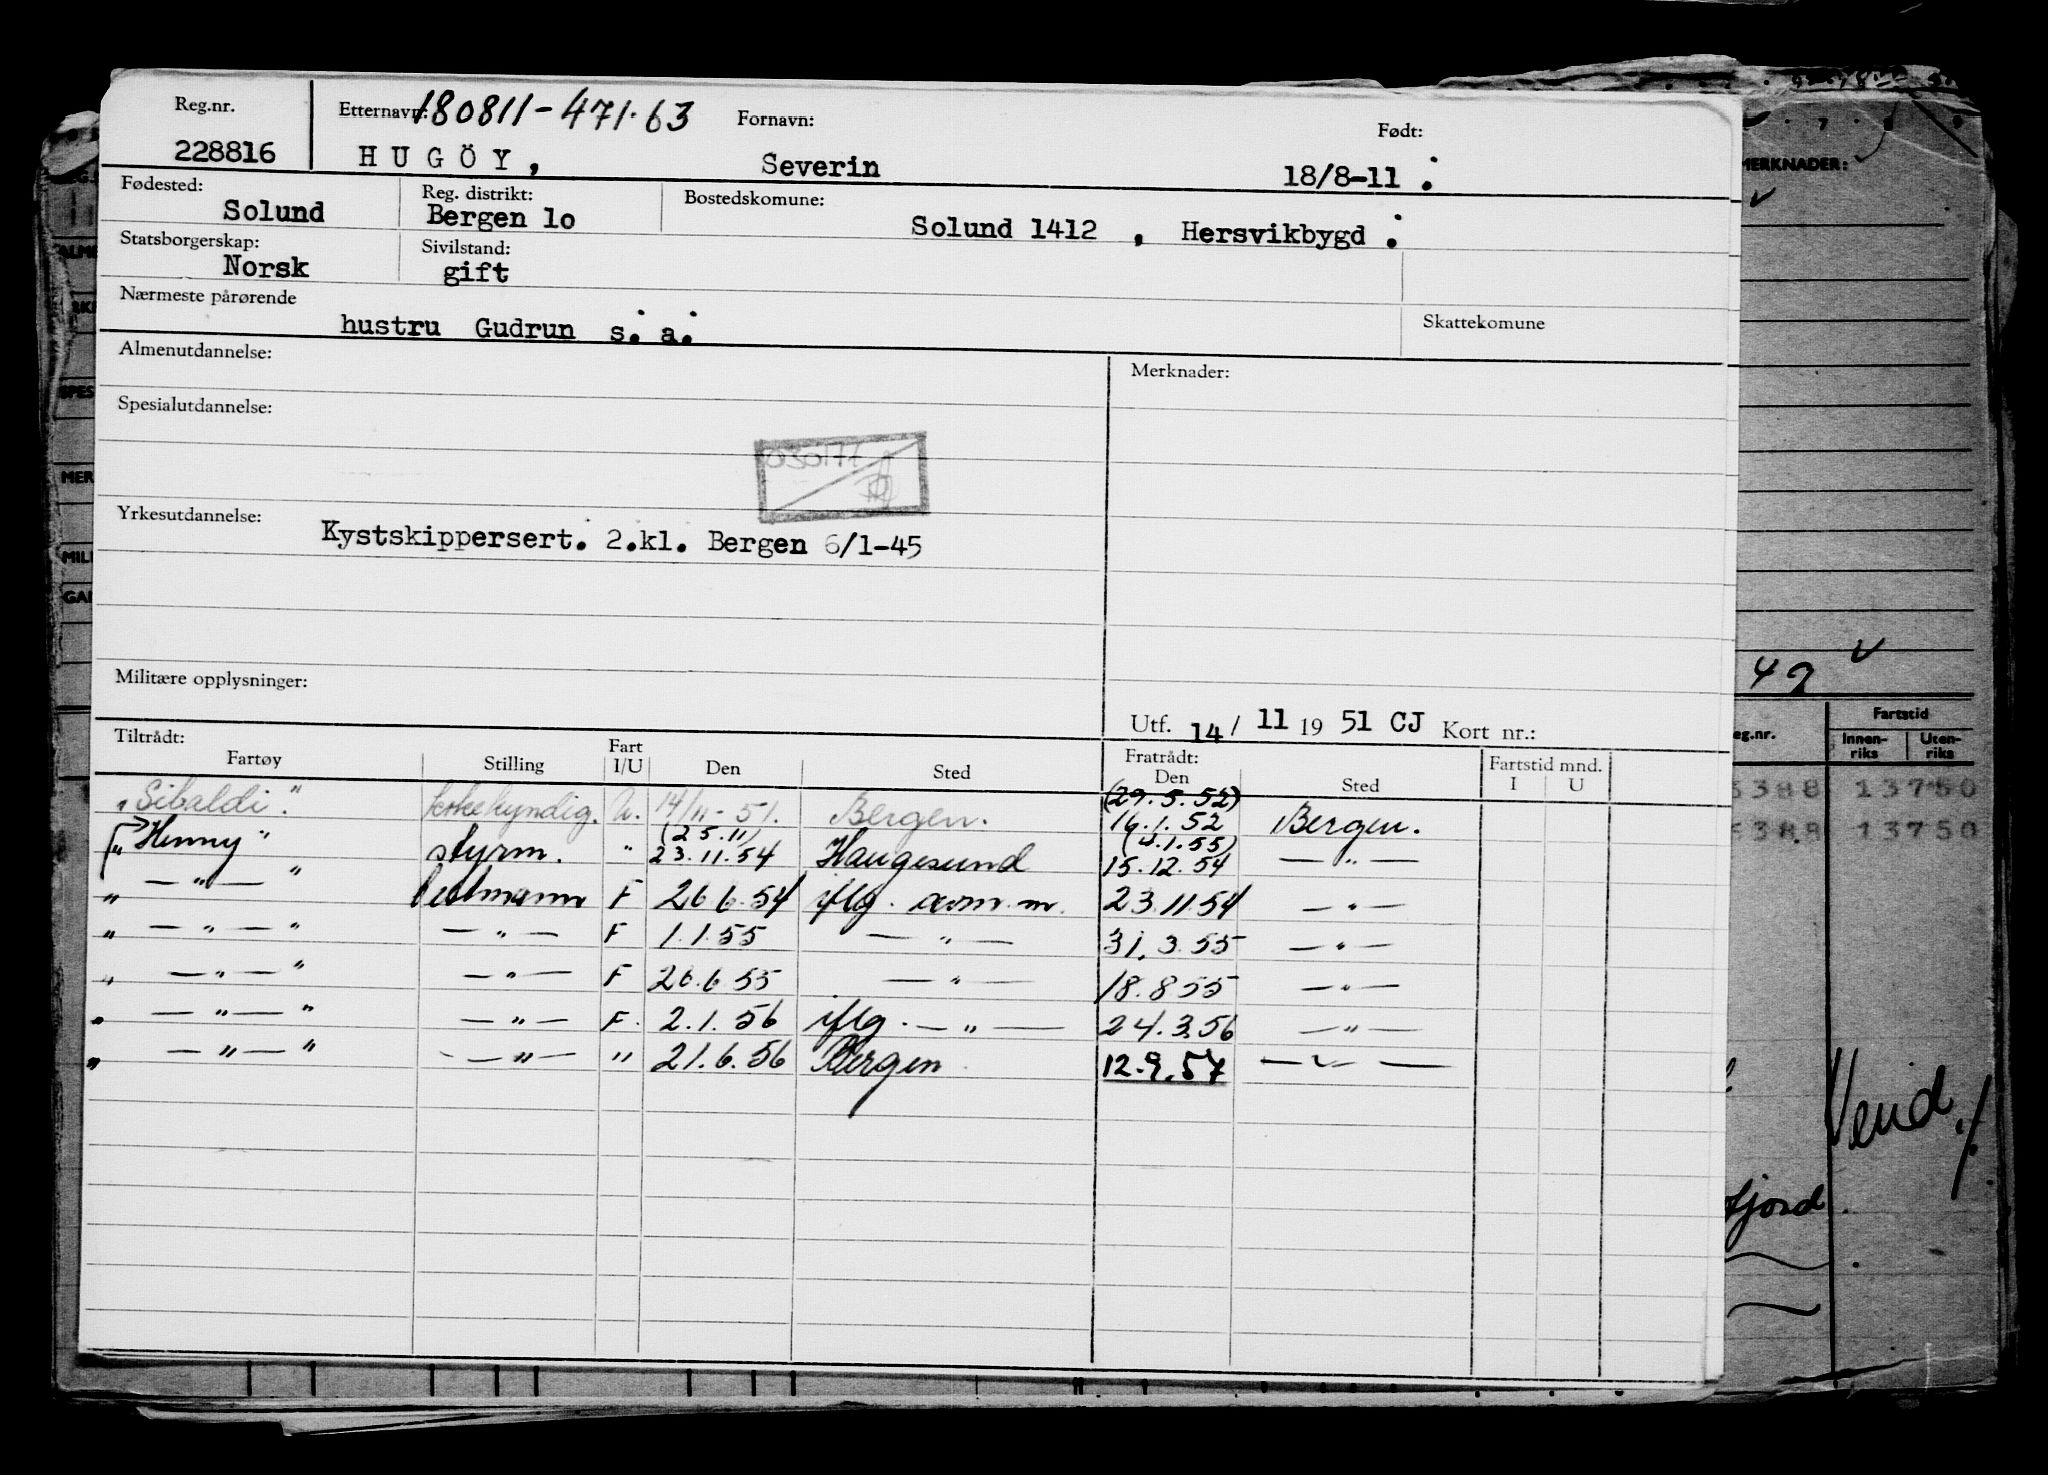 Reg.nr. Etternavn: 180811-471.63 Fornavn: Født:
228816 HUGÖY, Severin 18/8-11 .
Fødested: Reg. distrikt: Bostedskomune:
Solund Bergen 1o Solund 1412 , Hersvikbygd .
Statsborgerskap: Sivilstand:
Norsk gift
Nærmeste pårørende
hustru Gudrun s. a. Skattekomune
Almenutdannelse: Merknader:
Spesialutdannelse:
030177
Yrkesutdannelse: Kystskippersert. 2.kl. Bergen 6/1-45
Militære opplysninger:
Utf. 14/ 11 19 51 CJ Kort nr.:
Tiltrådt: Fratrådt: Fartstid mnd.
Fartøy Stilling Fart I/U Den Sted Den Sted I U
(29.5.52)
"Sibaldi." U. 14/11-51. Bergen. 16.1.52 Bergen.
(25.11) (4.1.55)
"Henny" styrm. " 23.11.54 Haugesund 15.12.54 —"—
" —"— " bestmann F 26.6.54 iflg. avm. m. 23.11.54 —"—
" —"— " —"— F 1.1.55 —"— 31.3.55 —"—
" —"— " —"— F 26.6.55 —"— 18.8.55 —"—
" —"— " —"— F. 2.1.56 iflg. —"— 24.3.56 —"—
" —"— " —"— " 21.6.56 Bergen 12.9.57 —"—
MERKNADER:
49
eg.nr. Fartstid
Innen-riks Uten-riks
388 13750
388 13750
Vend!
fjord.
MER
MILI
SPES